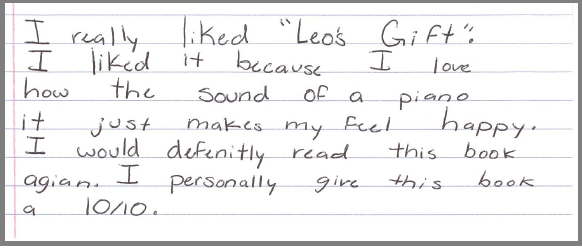 I really liked "Leo's Gift".
I liked it because I love
how the sound of a piano
it just makes my feel happy.
I would defenitly read this book
agian. I personally give this book
a 10/10.